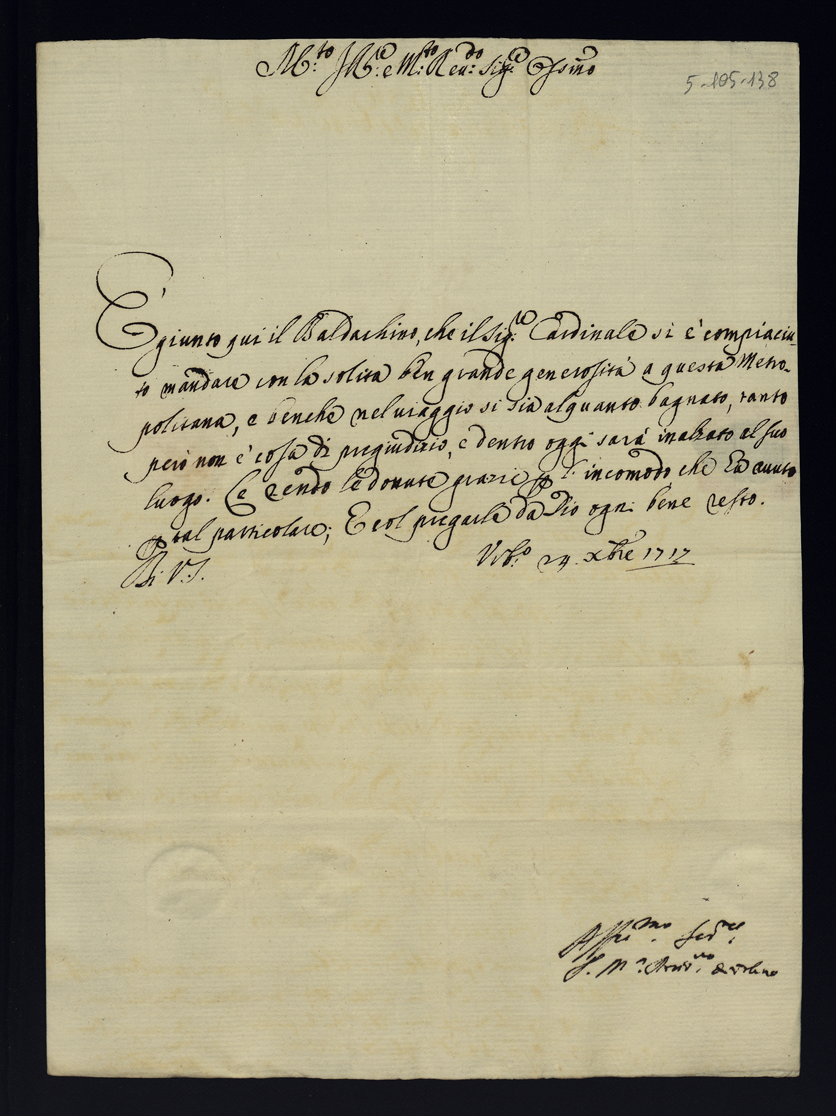 M.to Ill.re e M.to Rev.do Sig.re Oss.mo
5-105-138
È giunto qui il Baldachino, che il Sig.re Cardinale si è compiaciu-
to mandare con la solita ben grande generosità a questa Metro-
politana, e benche nel viaggio si sia alquanto bagnato, tanto
però non è cosa di pregiudizio, e dentro oggi sarà inalzato al suo
luogo. Le rendo le dovute grazie p l'incomodo che Ella avuto
p tal particolare; E col pregarle da Dio ogni bene resto.
Di V.S. Urb.o 24 Xbre 1717
Aff.mo Ser.re
Arciv.vo d'Urbino